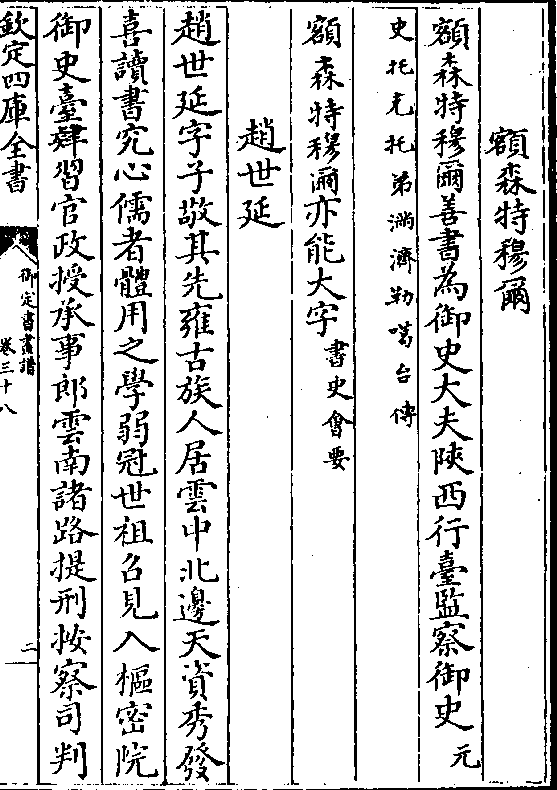 額森特穆爾
額森特穆爾善書為御史大夫陝西行臺監察御史元
史托克托弟滿濟勒噶台傳
額森特穆爾亦能大字書史會要
趙世延
趙世延字子敬其先雍古族人居雲中北邊天資秀發
喜讀書究心儒者體用之學弱冠世祖召見入樞密院
御史臺肄習官政授承事郎雲南諸路提刑按察司判
欽定四庫全書
御定書畫譜
卷三十八
二